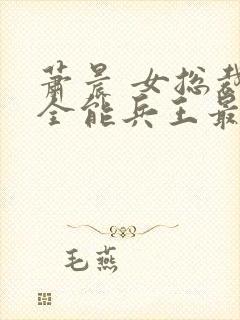 萧晨 女总裁
全能兵王最
毛燕